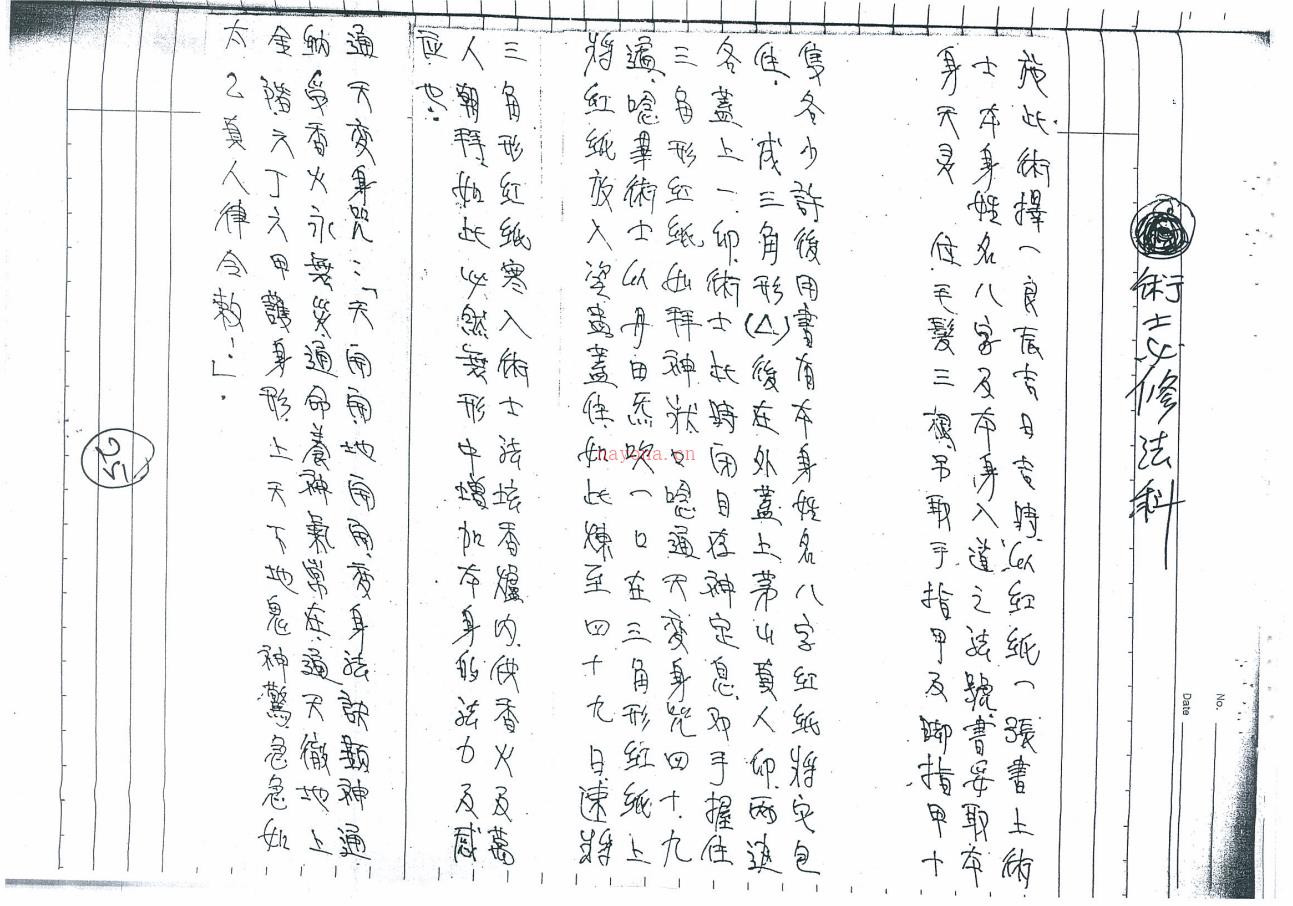 術士必修法科
施此術擇一良辰吉日吉時.以紅紙一張書上術
士本身姓名八字及本身入道之法號.書妥取本
身天灵 位毛髮三根.另取手指甲及脚指甲十
隻各少許.後用書有本身姓名八字紅紙將它包
住. 成三角形(△)後在外蓋上茅山真人印.兩邊
各蓋上一印.術士此時闭目存神定息.双手握住
三角形紅紙如拜神状.口唸通天变身咒四十九
遍.唸畢術士以丹田炁吹一口在三角形紅紙上
將紅紙放入瓷盅蓋住.如此煉至四十九日.速將
三角形紅紙塞入術士法坛香爐内.供香火及萬
人朝拜.如此必然無形中增加本身的法力及感
应也.
通天变身咒:「天闭闭.地闭闭.变身法訣顯神通
納受香火永無災.通命養神氣常在.通天徹地上
金階.六丁六甲護身形.上天下地鬼神驚.急急如
太乙真人律令敕!」.
25
No.
Date
nayona.cn